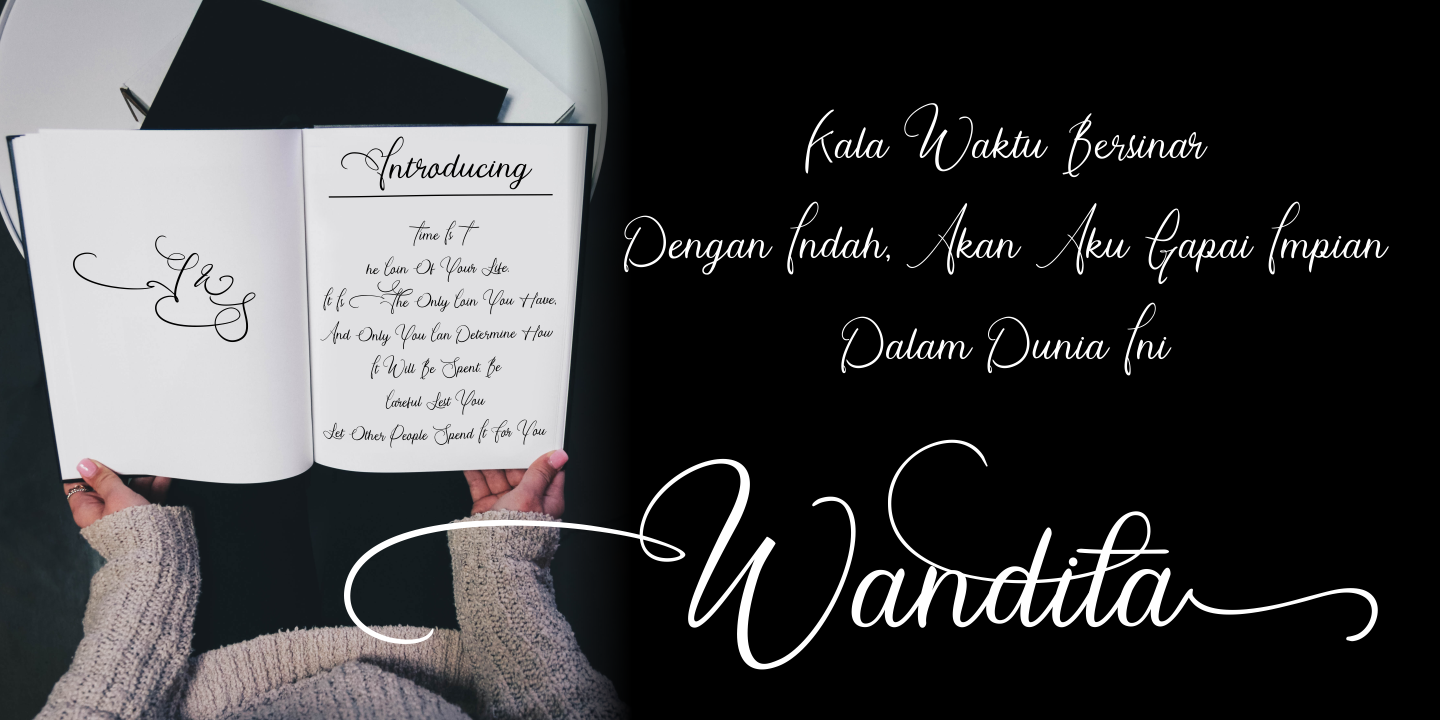 Introducing
Time Is T
he Coin Of Your Life.
It Is The Only Coin You Have,
And Only You Can Determine How
It Will Be Spent. Be
Careful Lest You
Let Other People Spend It For You
Kala Waktu Bersinar
Dengan Indah, Akan Aku Gapai Impian
Dalam Dunia Ini
Wandita